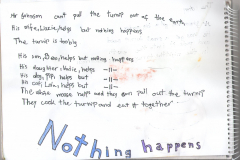 Mr Grinson can't pull the turnip out of the earth,
His wife, Lucie, helps but nothing happens
The turnip is too big
His son, Dan, helps but nothing happens
His daughter, helps -11-
His dog, helps but -11-
His cat, Lily, helps but -11-
The mouse helps and they can pull out the turnip
They cook the turnip and eat it together
Nothing happens